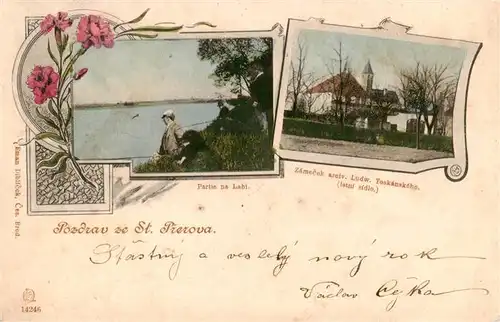 Partie na Labi.
Zámeček arciv. Ludw. Toskánského.
(letní sídlo.)
Eman Dibliček, Čes. Brod.
Pozdrav ze St. Přerova.
Šťastný a veselý nový rok
Václav Čejka
14246